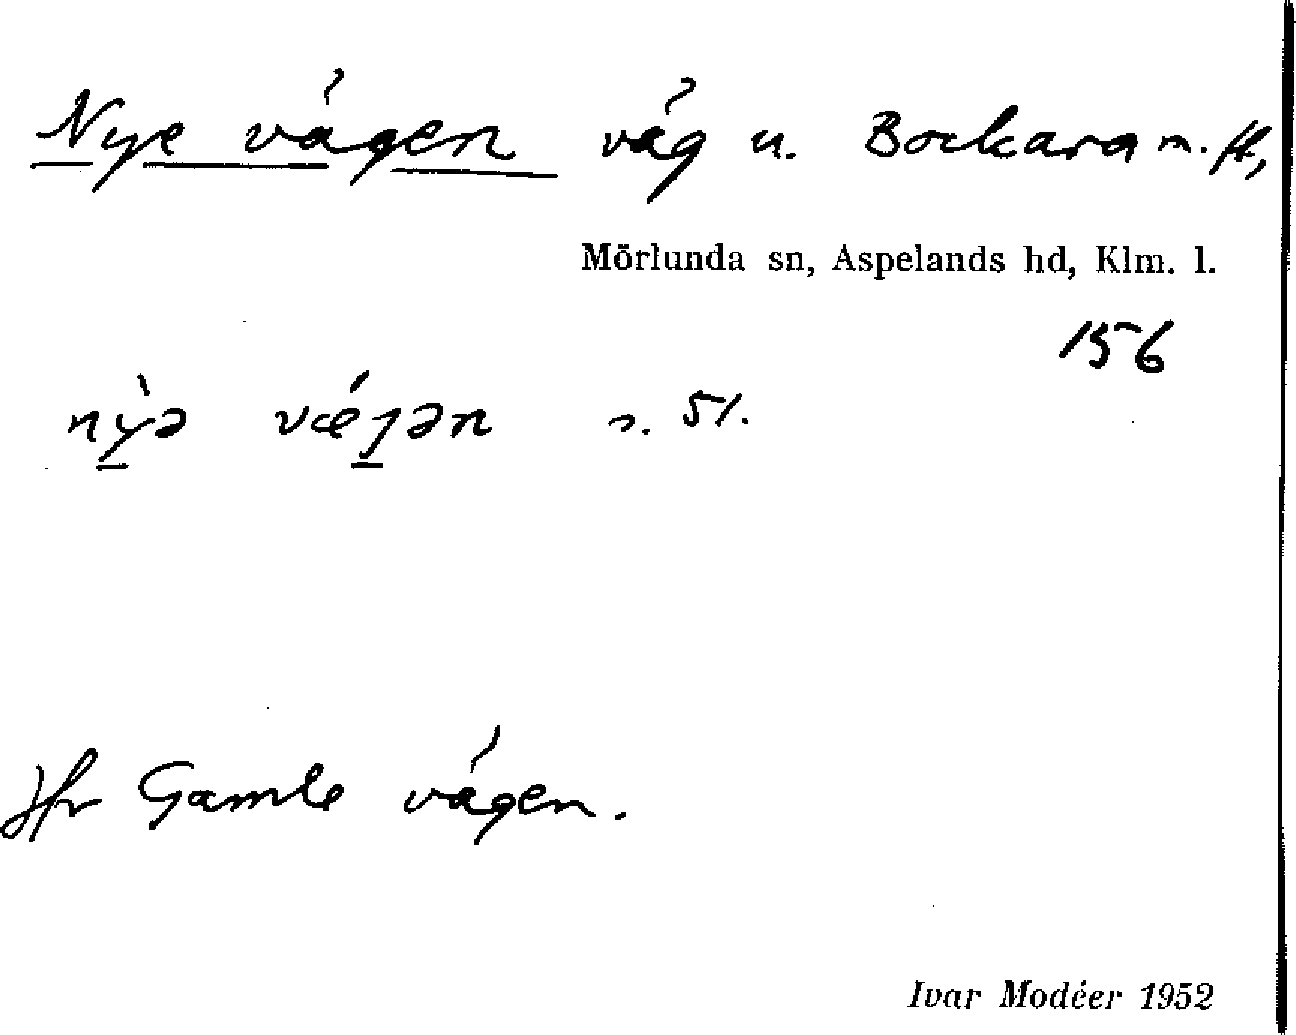 Nye vägen väg u. Bockara m. fl.,
Mörlunda sn, Aspelands hd, Klm. l.
156
nỳə vǽɡən s. 51.
Jfr Gamle vägen.
Ivar Modéer 1952